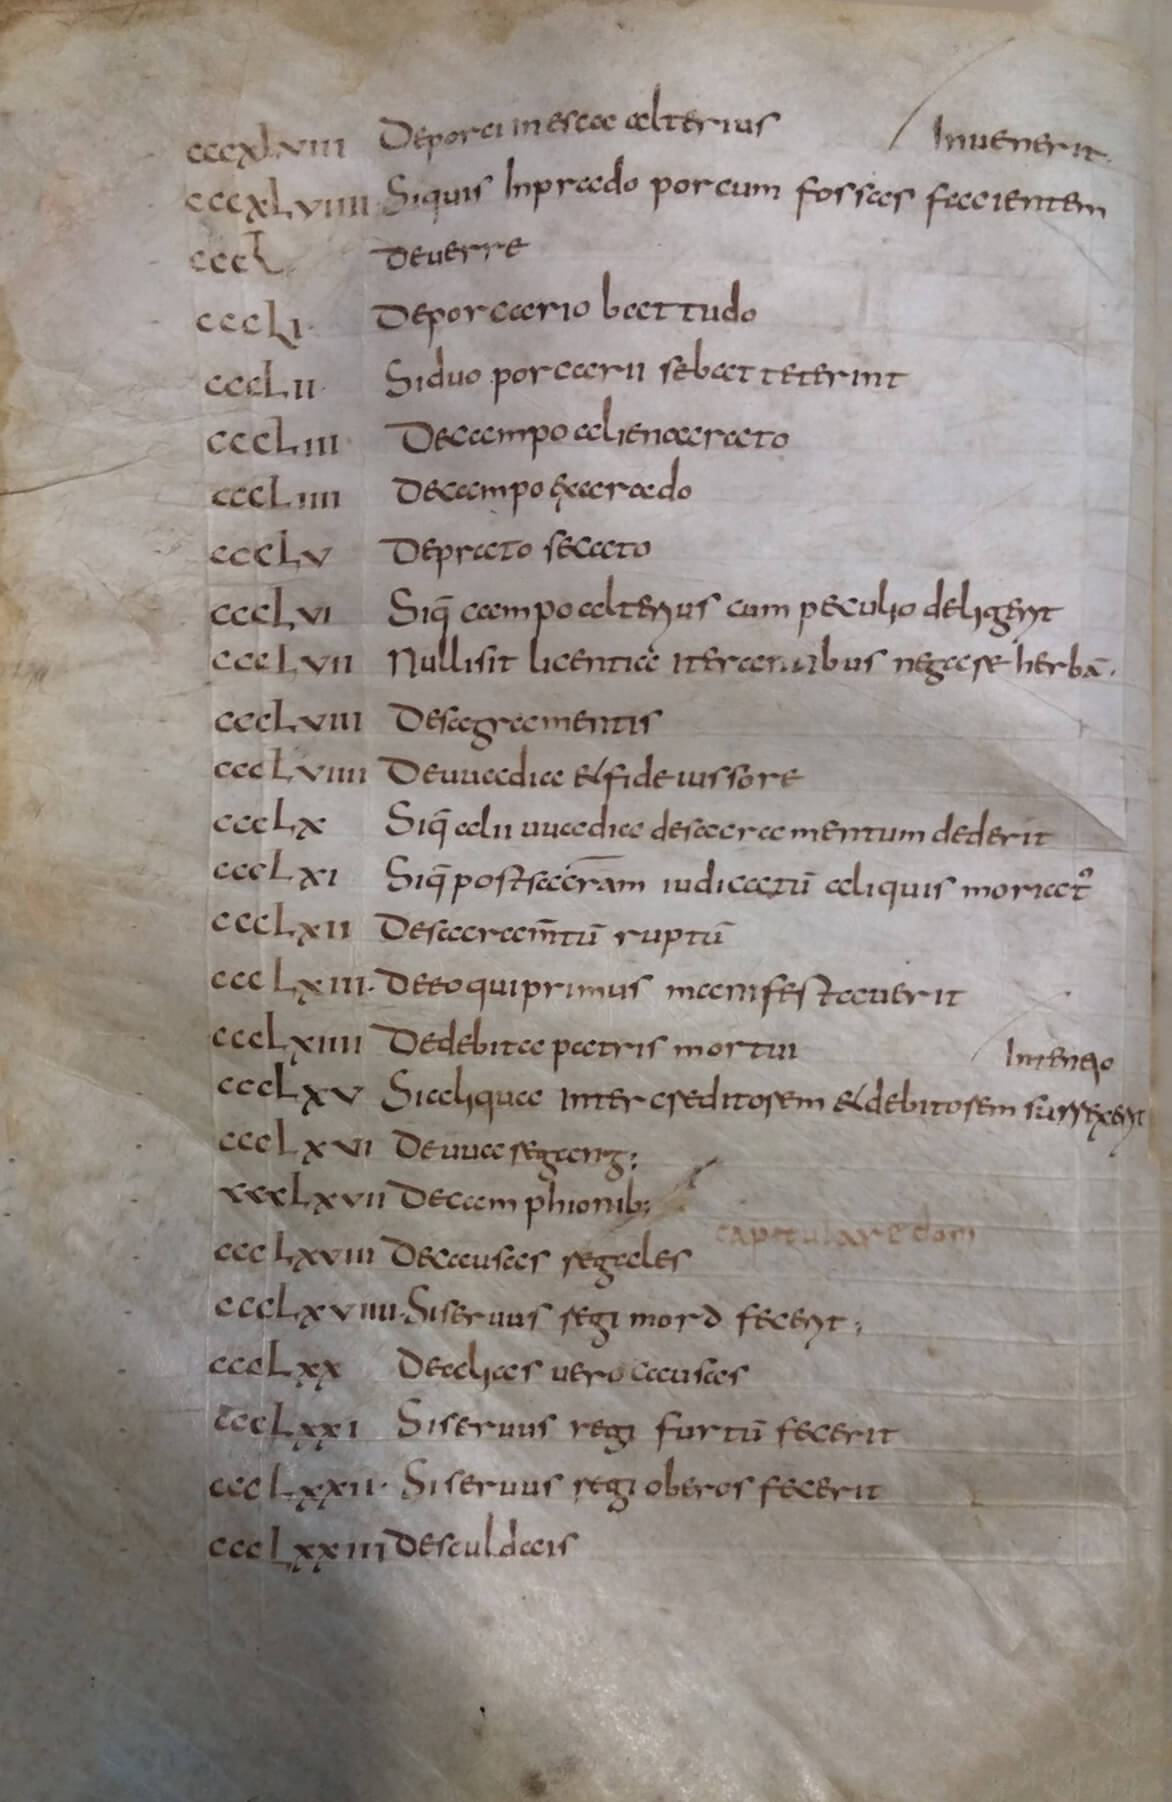 cccxLviii Deporci inesca alterius
Invenerit.
cccxLviiii Siquis Inprado porcum fossas facientem
cccL Deuerre
cccLi. Deporcario battudo
cccLii. Siduo porcarii sebatteterint
cccLiii. Decampo alienoarato
cccLiiii Decampo exarado
cccLv Deprato secato
cccLvi Siq̄ campo alterius cum peculio deligerit
cccLvii Nullisit licentia iterantibus negase herbā.
cccLviii Desagramentis
cccLviiii Deuuadia & fideiussore
cccLx Siq̄ alii uuadia desacramentum dederit
cccLxi Siq̄ postsacram̄ iudicatū aliquis moriat᾽
cccLxii Desacram̄tū ruptū
cccLxiii. Deeo quiprimus manifestauerit
cccLxiiii Dedebita patris mortui
Intençio
cccLxv Sialiqua inter creditorem & debitorem surrexerit
cccLxvi Deuuaregang;
cccLxvii Decamphionib;
cccLxviii Decausas regales
capitulare dom
cccLxviiii. Siseruus regi mord fecerit;
cccLxx Dealias uero causas
cccLxxi Siseruus regi furtū fecerit
cccLxxii. Siseruus regi oberos fecerit
cccLxxiii Desculdais